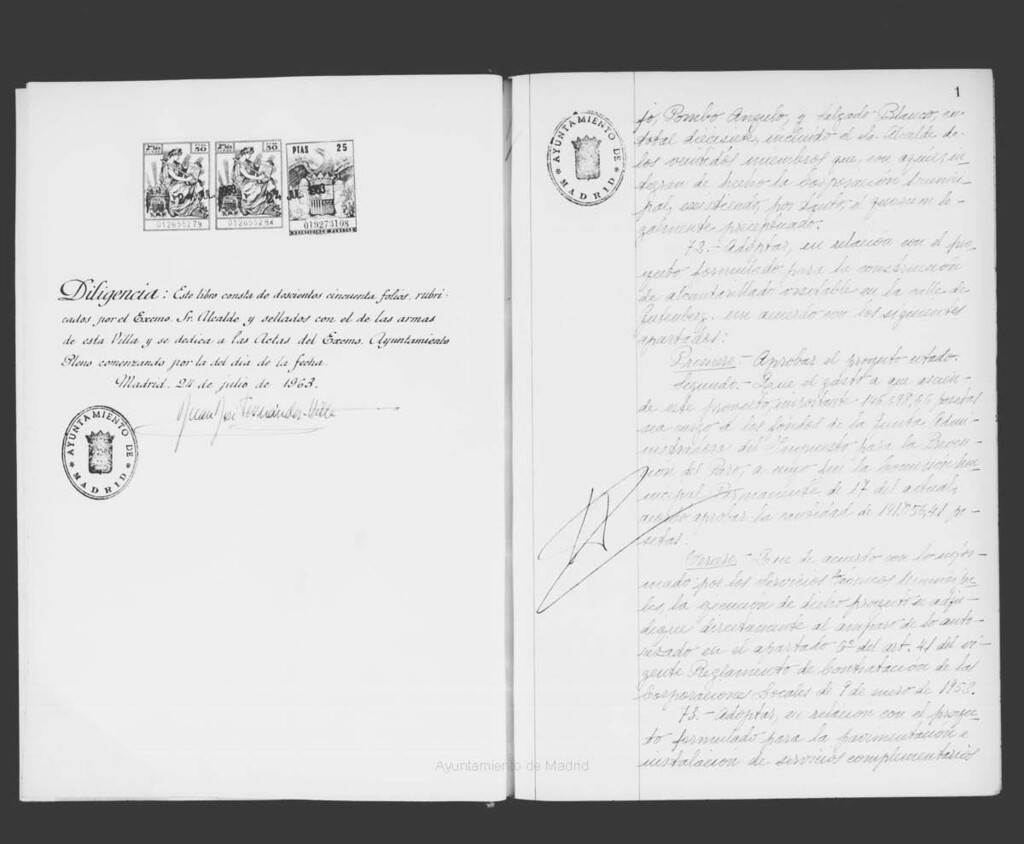 PTAS 25
012655279
012655284
019273108
VEINTICINCO PESETAS
Diligencia: Este libro consta de doscientos cincuenta folios, rubri-
cados por el Excmo. Sr. Alcalde y sellados con el de las armas
de esta Villa y se dedica a las Actas del Excmo. Ayuntamiento
Pleno comenzando por la del día de la fecha.
Madrid, 24 de julio de 1963.
AYUNTAMIENTO DE MADRID
1
AYUNTAMIENTO DE MADRID
jo, Pombo Angulo, y Calzado Blanco, en
total diecisiete, incluido el Sr. Alcalde de
los veintidós miembros que, con aquél, in-
tegran de hecho la Corporación Munici-
pal, existiendo, por tanto, el quorum le-
galmente preceptuado.
72.- Adoptar, en relación con el pro-
yecto formulado para la construcción
de alcantarillado visitable en la calle de
Gutenberg, un acuerdo con los siguientes
apartados:
Primero.- Aprobar el proyecto citado.
Segundo.- Que el gasto a que ascien-
de este proyecto, importante pesetas
sea cargo a los fondos de la Junta Admi-
nistradora del Impuesto para la Preven-
ción del Paro, a cuyo fin la Comisión Mu-
nicipal Permanente de 17 del actual,
acordó aprobar la cantidad de pe-
setas.
Tercero.- Que de acuerdo con lo infor-
mado por los Servicios Técnicos Municipa-
les, la ejecución de dicho proyecto se adju-
dique directamente al amparo de lo auto-
rizado en el apartado 6º del art. 41 del vi-
gente Reglamento de Contratación de las
Corporaciones Locales de 9 de enero de 1953.
73.- Adoptar, en relación con el proyec-
to formulado para la pavimentación e
instalación de servicios complementarios
Ayuntamiento de Madrid